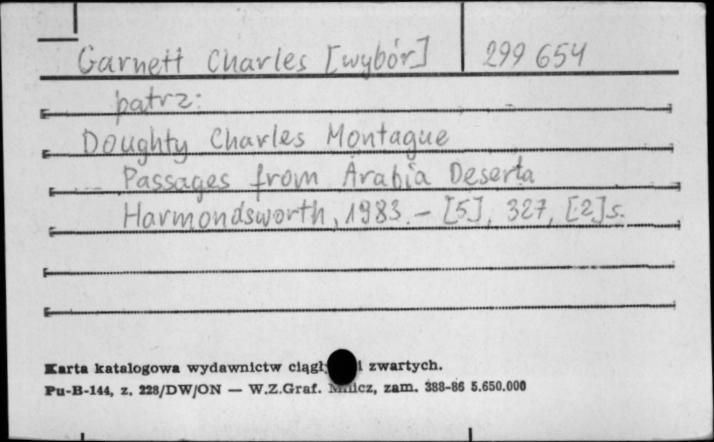 Garnett Charles [wybór] 299 654
patrz:
Doughty Charles Montague
Passages from Arabia Deserta
Harmondsworth, 1983. - [5], 327, [2] s.
Karta katalogowa wydawnictw zwartych.
Pu-B-144, z. 228/DW/ON — W.Z.Graf. zam. 388-86 5.650.000